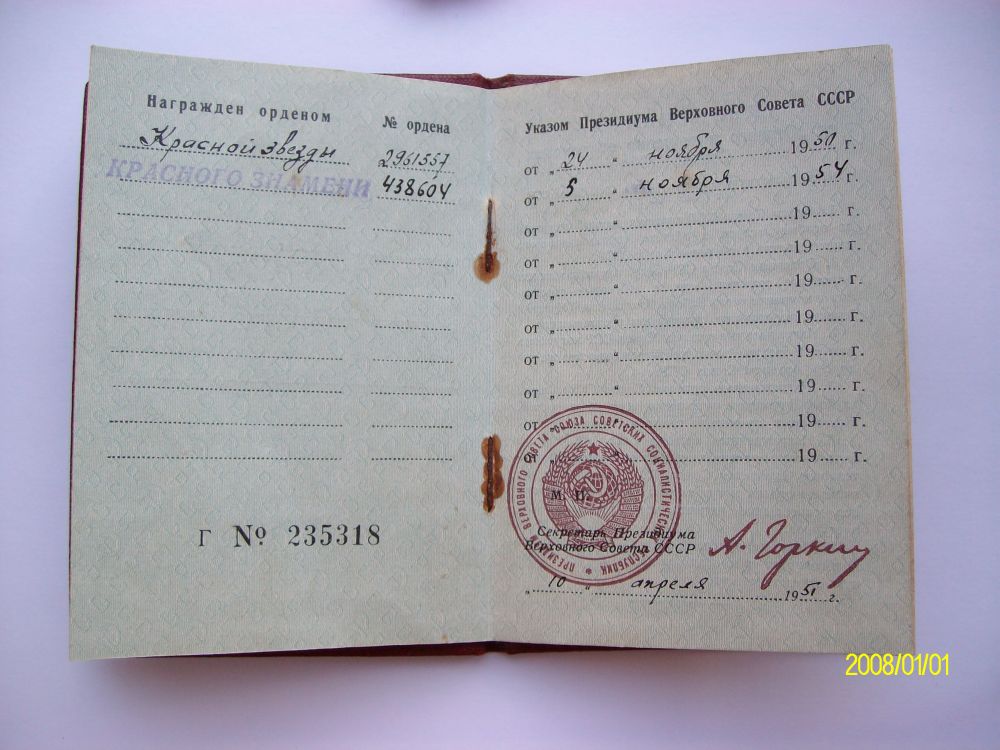 Награжден орденом
№ ордена
Красной звезды 2961557
КРАСНОГО ЗНАМЕНИ 438604
Г № 235318
Указом Президиума Верховного Совета СССР
от „ 24 “ ноября 1950 г.
от „ 5 “ ноября 1954 г.
от „ “ 19 г.
от „ “ 19 г.
от „ “ 19 г.
от „ “ 19 г.
от „ “ 19 г.
от „ “ 19 г.
от „ “ 19 г.
от „ “ 19 г.
ПРЕЗИДИУМ ВЕРХОВНОГО СОВЕТА СОЮЗА СОВЕТСКИХ СОЦИАЛИСТИЧЕСКИХ РЕСПУБЛИК
М. П.
Секретарь Президиума
Верховного Совета СССР
А. Горкин
„ 10 “ апреля 1951 г.
2008/01/01